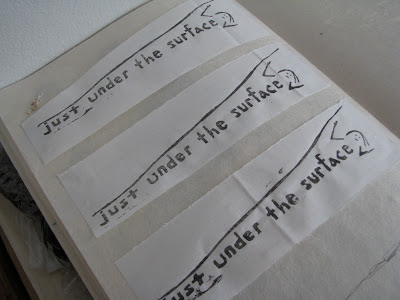 just under the surface
just under the surface
just under the surface